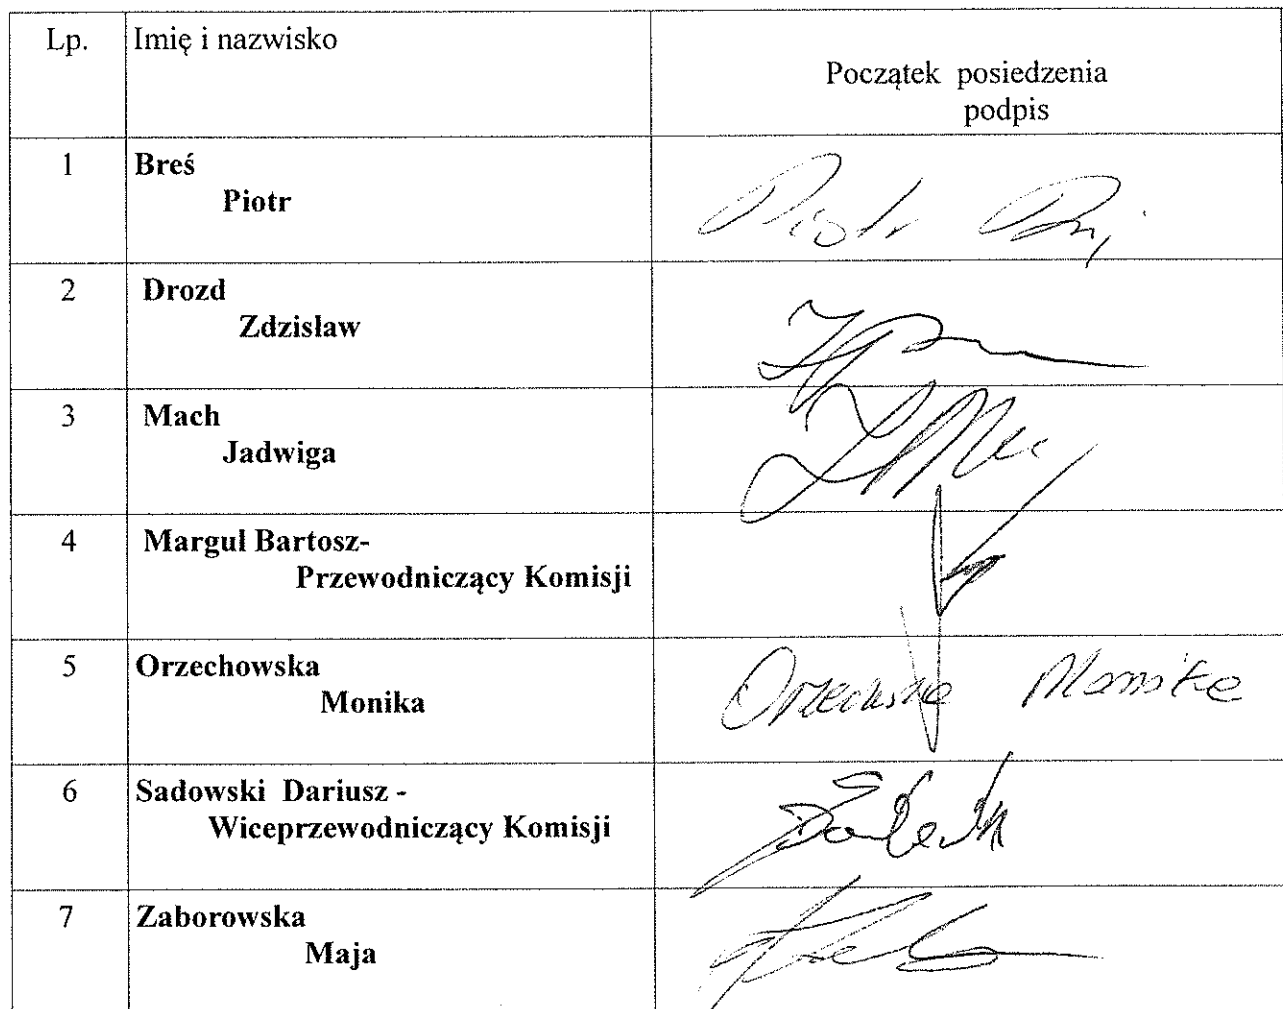 Lp. Imię i nazwisko
Początek posiedzenia
podpis
1 Breś
Piotr
Piotr
2 Drozd
Zdzisław
3 Mach
Jadwiga
4 Marguł Bartosz-
Przewodniczący Komisji
5 Orzechowska
Monika
Monika
6 Sadowski Dariusz -
Wiceprzewodniczący Komisji
7 Zaborowska
Maja